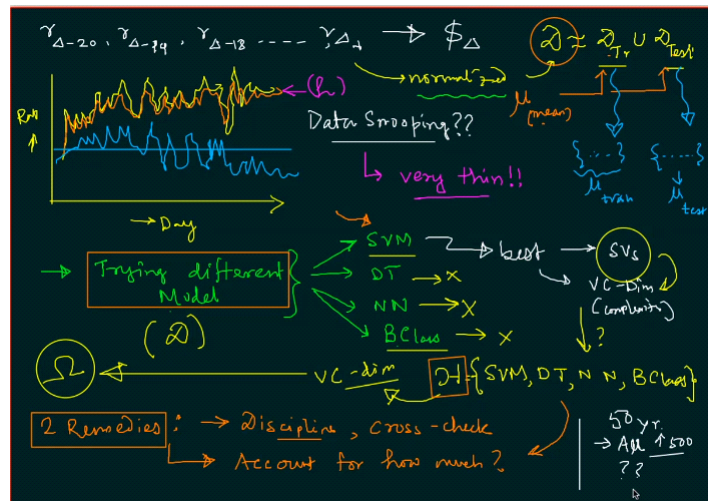 r Δ-20, r Δ-19, r Δ-18 ----- r Δ-1 → $ Δ
D ≈ D Tr ∪ D Test
normalized
μ (mean)
Rate ↑
(h)
Data Snooping??
very thin!!
{....}
μ train
{.....}
μ test
→ Day
→ Trying different Model
(D)
SVM → best → SVs
DT → X
NN → X
BClass → X
VC-Dim (Complexity)
?
Ω
VC-dim
H = {SVM, DT, NN, BClass}
2 Remedies : → Discipline, Cross-check
→ Account for how much?
50 yr.
→ All ↑ 500
??